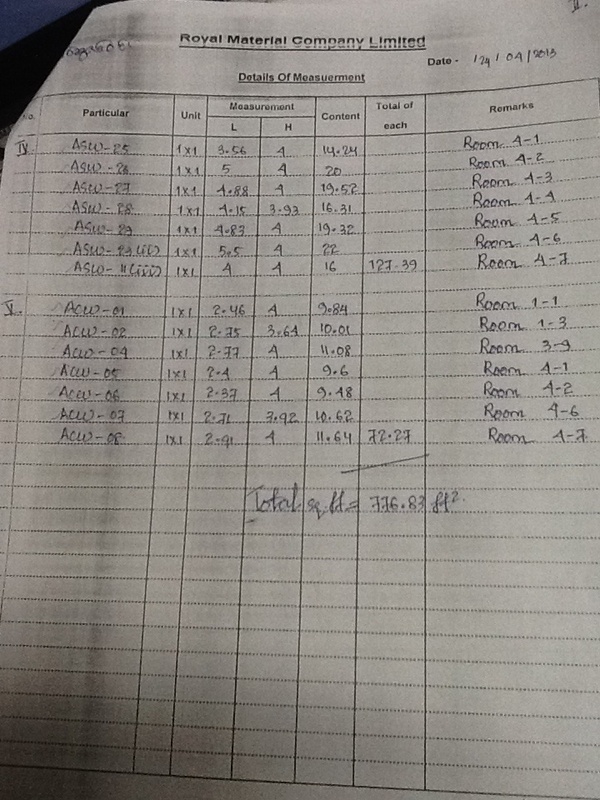 II.
Royal Material Company Limited
Date - 24 / 04 / 2013
Details Of Measuerment
Particular Unit Measurement Content Total of each Remarks
L H
IV ASW-25 1x1 3.56 4 14.24 Room 4-1
ASW-26 1x1 5 4 20 Room 4-2
ASW-27 1x1 4.88 4 19.52 Room 4-3
ASW-28 1x1 4.15 3.93 16.31 Room 4-4
ASW-29 1x1 4.83 4 19.32 Room 4-5
1x1 5.5 4 22 Room 4-6
ASW-11(iii) 1x1 4 4 16 127.39 Room 4-7
V. ACW-01 1x1 2.46 4 9.84 Room 1-1
ACW-02 1x1 2.75 3.64 10.01 Room 1-3
ACW-04 1x1 2.77 4 11.08 Room 3-9
ACW-05 1x1 2.4 4 9.6 Room 4-1
ACW-06 1x1 2.37 4 9.48 Room 4-2
ACW-07 1x1 2.71 3.92 10.62 Room 4-6
ACW-08 1x1 2.91 4 11.64 72.27 Room 4-7
Total sq ft = 776.83 ft².